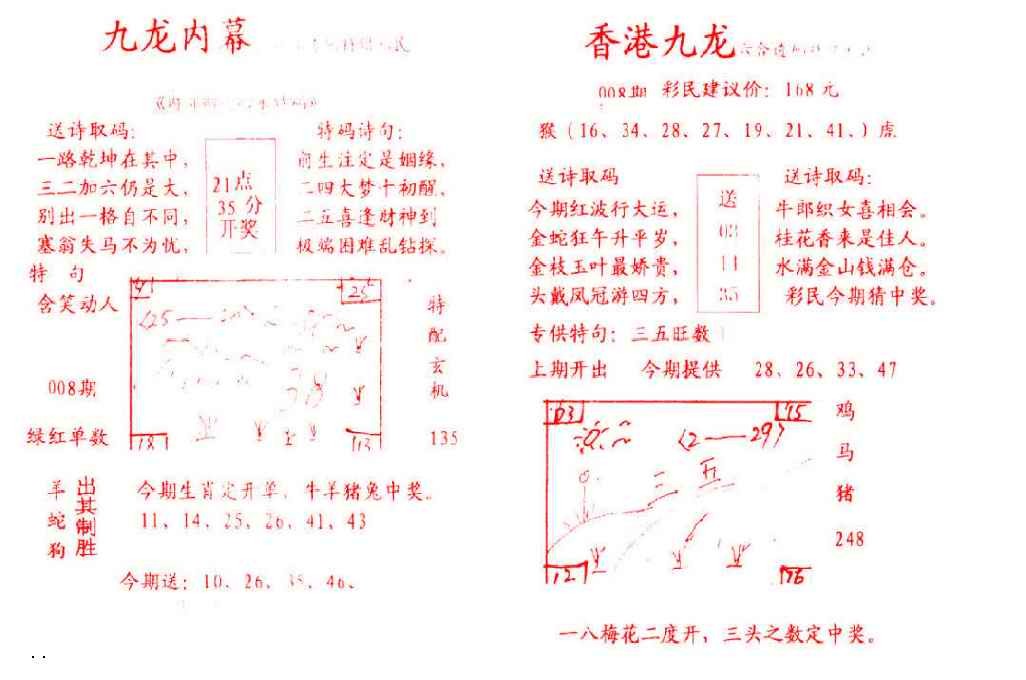 九龙内幕
送诗取码:
一路乾坤在其中,
三二加六仍是大,
别出一格自不同,
塞翁失马不为忧,
21点
35分
开奖
特码诗句:
前生注定是姻缘,
二四大梦十初醒,
二五喜逢财神到
极端困难乱钻探。
特 句
含笑动人
008期
绿红单数
25
25
38
18
13
特
配
玄
机
135
羊
蛇
狗
出其制胜
今期生肖定开单,牛羊猪兔中奖。
11、14、25、26、41、43
今期送:10、26、35、46、
香港九龙
008期 彩民建议价:168元
猴(16、34、28、27、19、21、41、)虎
送诗取码
今期红波行大运,
金蛇狂午升平岁,
金枝玉叶最娇贵,
头戴凤冠游四方,
送
03
11
35
送诗取码:
牛郎织女喜相会。
桂花香来是佳人。
水满金山钱满仓。
彩民今期猜中奖。
专供特句:三五旺数
上期开出 今期提供 28、26、33、47
03
45
(2——29)
三 五
12
46
鸡
马
猪
248
一八梅花二度开,三头之数定中奖。